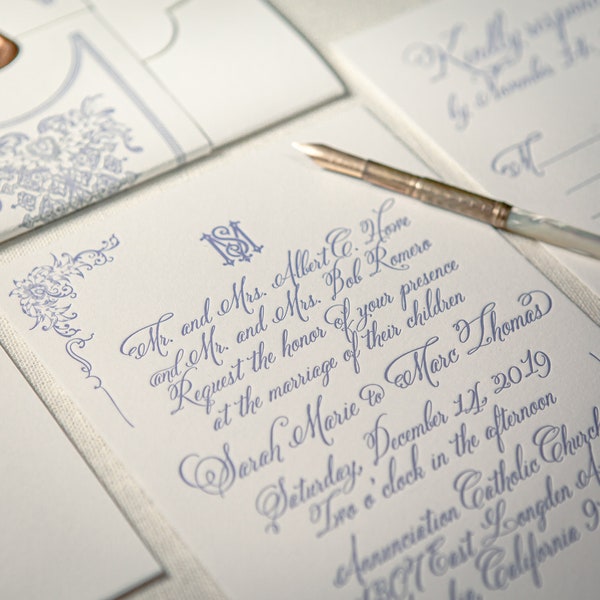 Kindly
by
M
SM
Mr. and Mrs. Albert E. Howe
and Mr. and Mrs. Bob Romero
Request the honor of your presence
at the marriage of their children
Sarah Marie & Marc Thomas
Saturday, December 14, 2019
Two o'clock in the afternoon
Annunciation Catholic Church
East Longden
California 9